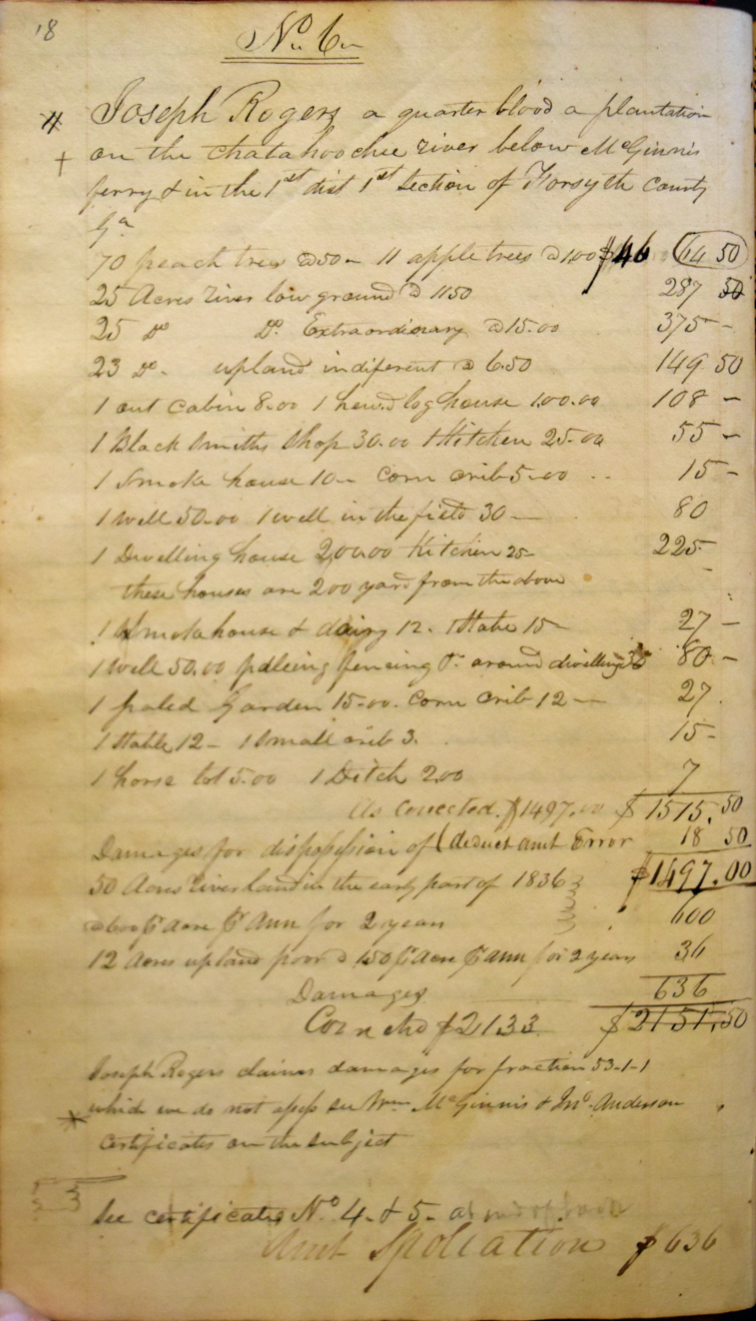 18
No. 6
Joseph Rogers a quarter blood a plantation
on the chatahoochee river below McGinnis
ferry & in the 1st dist 1st Section of Forsyth County
Ga
70 peach trees @ 50 - 11 apple trees @ 1.00 $46 64 50
25 Acres river low ground @ 11 50 287 50
25 Do Do. Extraordinary @ 15.00 375 -
23 Do. upland indiferent @ 6.50 149 50
1 out Cabin 8.00 1 hewd log house 100.00 108 -
1 Black Smiths Shop 30.00 1 Kitchen 25.00 55 -
1 Smoke house 10 - Corn crib 5.00 .. 15 -
1 well 50.00 1 well in the field 30 - 80
1 Dwelling house 200.00 Kitchen 25 - 225 -
these houses are 200 yard from the above
1 Smoke house & dairy 12 - 1 Stable 15 - 27 -
1 well 50.00 paleing fencing &c around dwelling 30 80 -
1 paled Garden 15.00. Corn Crib 12 - 27.
1 Stable 12 - 1 Small crib 3. 15 -
1 horse lot 5.00 1 Ditch 2.00 7
As Corected. $1497.00 $ 1515.50
Damages for dispossession of (deduct amt Error 18 50
50 Acres river land in the early part of 1836 $1497.00
@ 600 Pr Acre Pr Ann for 2 years 600
12 Acres upland poor @ 1.50 Pr Acre Pr Ann for 2 years 36
Damages 636
$2133 $2151.50
Joseph Rogers claims damages for fraction 53-1-1
which we do not assess see Wm McGinnis & Jno. Anderson
Certificates on the subject
See certificates No 4 & 5 -
Amt Spoliation $636